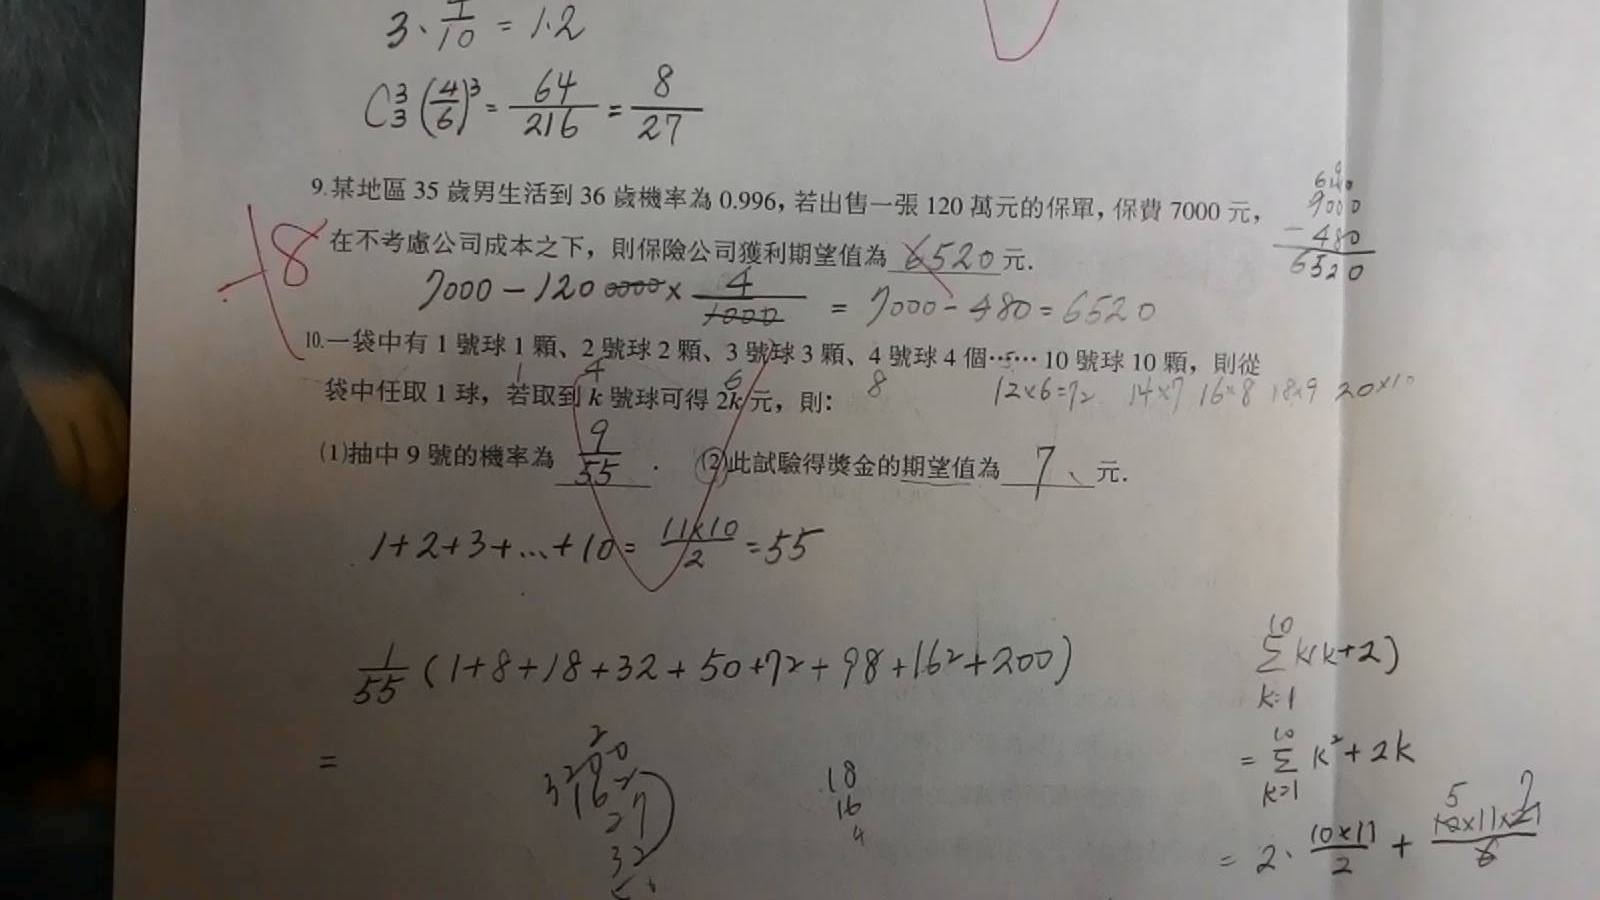 3·/10 = 1.2
C³₃(4/6)³ = 64/216 = 8/27
9.某地區 35 歲男生活到 36 歲機率為 0.996，若出售一張 120 萬元的保單，保費 7000 元，
在不考慮公司成本之下，則保險公司獲利期望值為 6520 元.
7000
- 480
6520
-18
7000 - 120 0000 × 4/1000 = 7000 - 480 = 6520
10.一袋中有 1 號球 1 顆、2 號球 2 顆、3 號球 3 顆、4 號球 4 個…… 10 號球 10 顆，則從
1 4 6 8 12×6=72 14×7 16×8 18×9 20×10
袋中任取 1 球，若取到 k 號球可得 2k 元，則：
(1)抽中 9 號的機率為 9/55 . (2)此試驗得獎金的期望值為 7 元.
1+2+3+…+10 = 11×10/2 = 55
1/55 (1+8+18+32+50+72+98+162+200)
=
18
16
4
Σ k(k+2)
10
k=1
= Σ k²+2k
10
k=1
= 2· 10×11/2 + 10×11×21/6
5